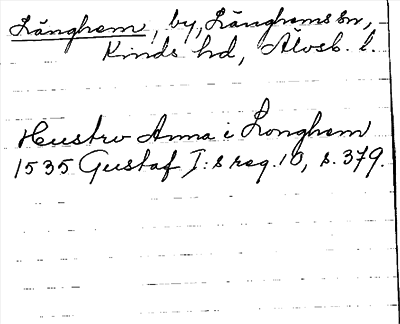 Länghem, by, Länghems sn,
Kinds hd, Älvsb. l.
Hustro Anna i Longhem
1535 Gustaf I:s reg. 10, s. 379.